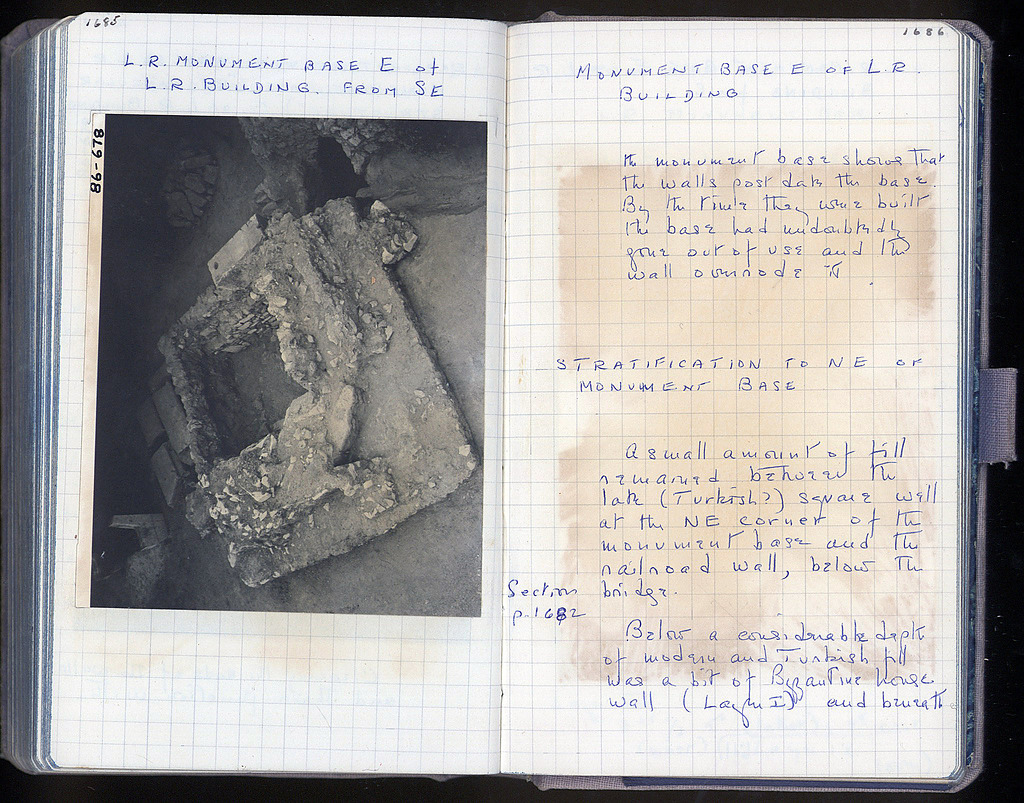 1685
L.R. MONUMENT BASE E of
L.R. BUILDING. FROM SE
86-678
1686
MONUMENT BASE E OF L.R.
BUILDING
the monument base shows that
the walls post date the base.
By the time they were built
the base had undoubtedly
gone out of use and the
wall overrode it
STRATIFICATION TO NE OF
MONUMENT BASE
A small amount of fill
remained between the
late (Turkish?) square well
at the NE corner of the
monument base and the
railroad wall, below the
bridge.
Section
p. 1682
Below a considerable depth
of modern and Turkish fill
was a bit of Byzantine house
wall (Layer I) and beneath